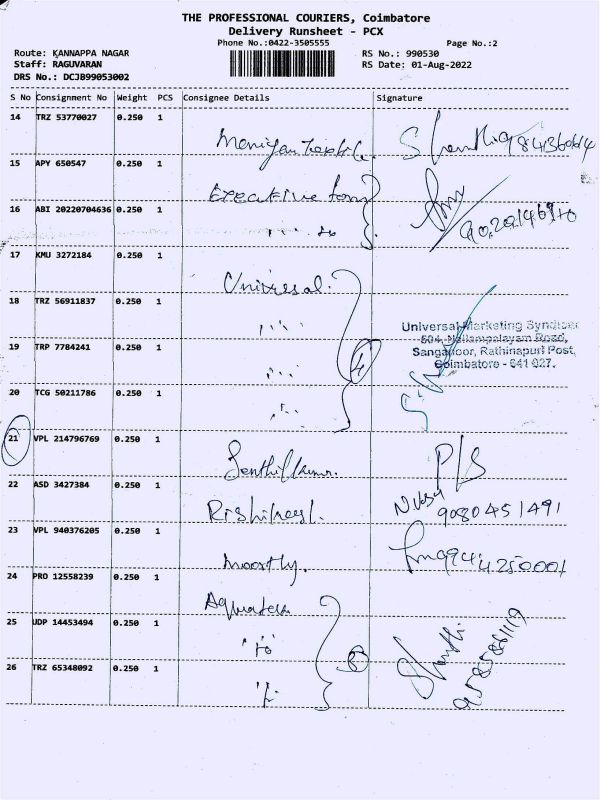 THE PROFESSIONAL COURIERS, Coimbatore
Delivery Runsheet - PCX
Phone No.:0422-3505555
Page No.:2
Route: KANNAPPA NAGAR
RS No.: 990530
Staff: RAGUVARAN
RS Date: 01-Aug-2022
DRS No.: DCJB99053002
S No Consignment No Weight PCS Consignee Details Signature
14 TRZ 53770027 0.250 1
15 APY 650547 0.250 1
Executive
16 ABI 20220704636 0.250 1
17 KMU 3272184 0.250 1
Universal.
18 TRZ 56911837 0.250 1
Universal Marketing Syndicate
504, Nallampalayam Road,
19 TRP 7784241 0.250 1
Sanganoor, Rathinapuri Post,
4
Coimbatore - 641 027.
20 TCG 50211786 0.250 1
21 VPL 214796769 0.250 1
Senthilkumar. P/S
22 ASD 3427384 0.250 1
9080451491
23 VPL 940376205 0.250 1
Moorthy.
24 PRO 12558239 0.250 1
25 UDP 14453494 0.250 1
Shanthi
26 TRZ 65348092 0.250 1